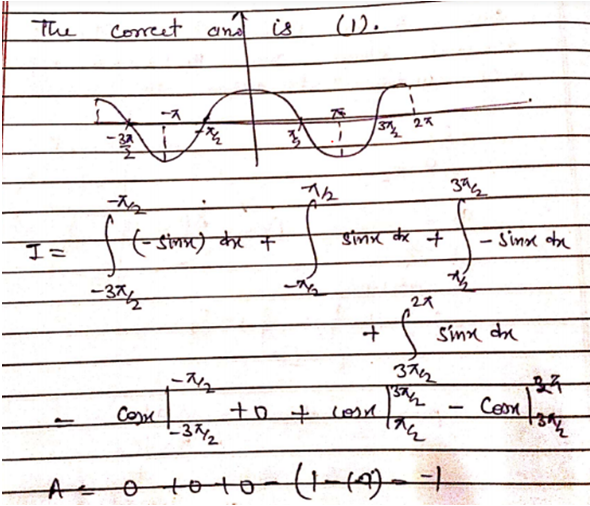 The correct ans is (1).
-3π/2 -π -π/2 π/2 π 3π/2 2π
I = ∫_{-3π/2}^{-π/2} (-sinx) dx + ∫_{-π/2}^{π/2} sinx dx + ∫_{π/2}^{3π/2} - sinx dx
+ ∫_{3π/2}^{2π} sinx dx
= cosx |_{-3π/2}^{-π/2} + 0 + cosx |_{π/2}^{3π/2} - cosx |_{3π/2}^{2π}
A = 0 + 0 + 0 - (1 - ) = -1